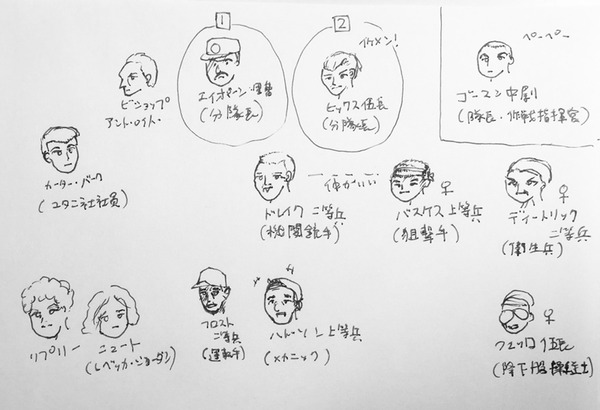 1
2
イケメン!
ペーペー
ビショップ
アンドロイド
エイポーン軍曹
(分隊長)
ヒックス伍長
(分隊長)
ゴースン中尉
(隊長・作戦指揮官)
カーター・バーク
(ユタニ社社員)
ドレイク 二等兵
(機関銃手)
仲がいい
バスケス上等兵
(狙撃手)
♀
ディートリック
二等兵
(衛生兵)
♀
リプリー
ニュート
(レベッカ・ジョーダン)
フロスト
二等兵
(運転手)
ハドソン上等兵
(メカニック)
♀
フェッロ伍長
(降下船操縦士)